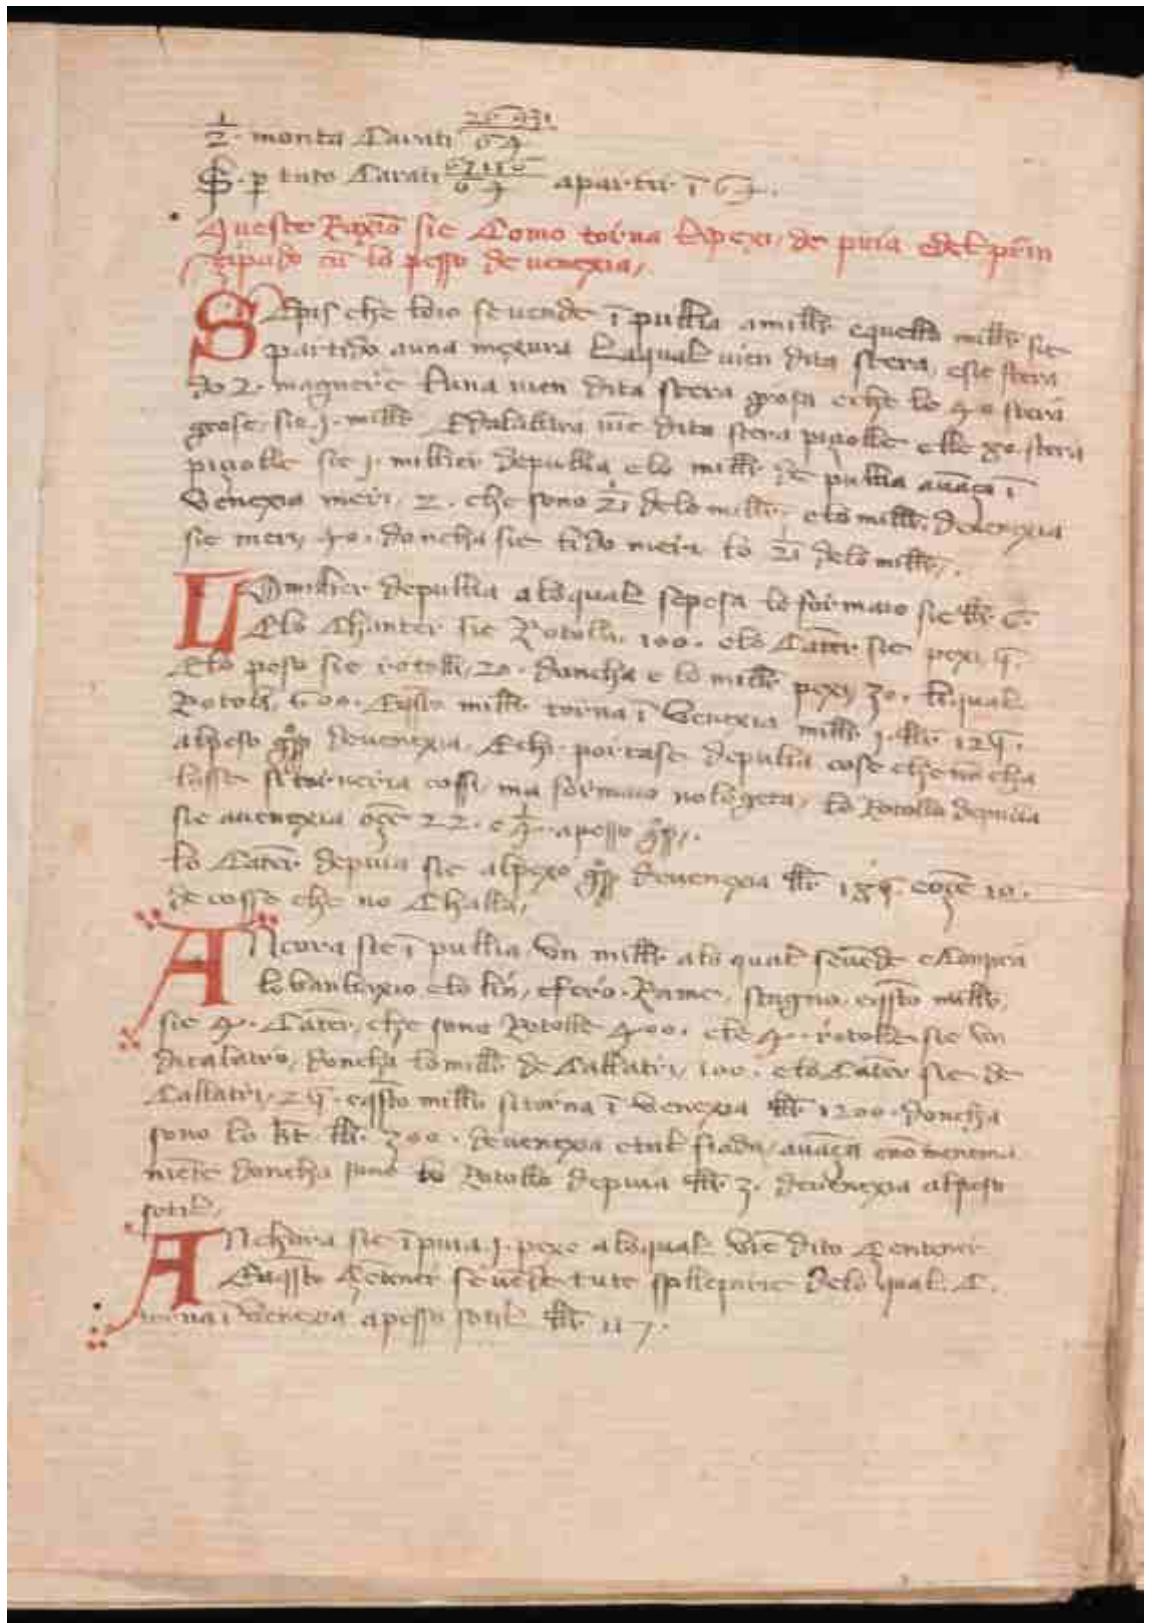 1/2 · monta Carati
S · p tuto Carati apartir ī 64 ·
Queste Raxiō sie Como torna li pexi de puia del prin
zipado cū lo pesso de uenexia /
SApis che loio se uende ī pullia amillr̄ equello millr̄ sie
partido auna mexura laqual uien dita stera, este stera
do 2 · magnere luna uien dita stera grosa eche lo 40 stera
grose · sie · j · millr̄ Edalaltra uiē dita stera pizolle elle 80 · stera
pizolle sie j · millier depullia elo millr̄ de pullia auāça ī
Venexia meri · 2 · che sono 1/21 delo millr̄, elo millr̄ deuenexia
sie meri 40 · doncha sie li do meri lo 1/21 delo millr̄ / .
LOmillier depullia aloqual sepesa lo formaio sie llr̄ 6 ·
Elo Chanter sie Rotolli · 100 · elo Cāter sie pexi, 5 ·
Elo peso sie rotolli, 20 · doncha e lo millr̄ pexi 30 · liqual
Rotoli, 600 · Eqsto millr̄ torna ī Venexia millr̄ j · llr̄ 125 ·
alpeso gº deuenexia · Echi portase depulia cose che nō cha
lasse si torneria cossi, ma formaio nolozeta, lo Rotollo depuia
sie auenexia oçe 22 · e 1/4 · apesso gº / .
lo Cāter depuia sie alpexo gº deuenexia llr̄ 185 · eoçe 10 ·
de cosse che no Challa,
ANcora sie ī pullia Vn millr̄ alo qual seuēde eConpra
lo banbaxio elo lin, efero · Rame, stagno · eqsto millr̄,
sie 4 · Cāter, che sono Rotolli 400 · ele 4 · rotolli sie Vn
dicalatro, doncha lo millr̄ de Callatri, 100 · elo Cāter sie de
Callatri, 25 · eqsto millr̄ si torna ī Venexia llr̄ 1200 · doncha
sono lo llr̄ 300 · deuenexia etal fiada, auāça enō menoma
niēte doncha sono lo Rotollo depuia llr̄ 3 · deuenexia alpeso
sotil,
ANchora sie ī puia · j · pexo aloqual Viē dito Centener
Eaqsto Cētener seuēde tute spllezarie delo qual · C ·
torna ī Venexia apesso sotil llr̄ 117 ·